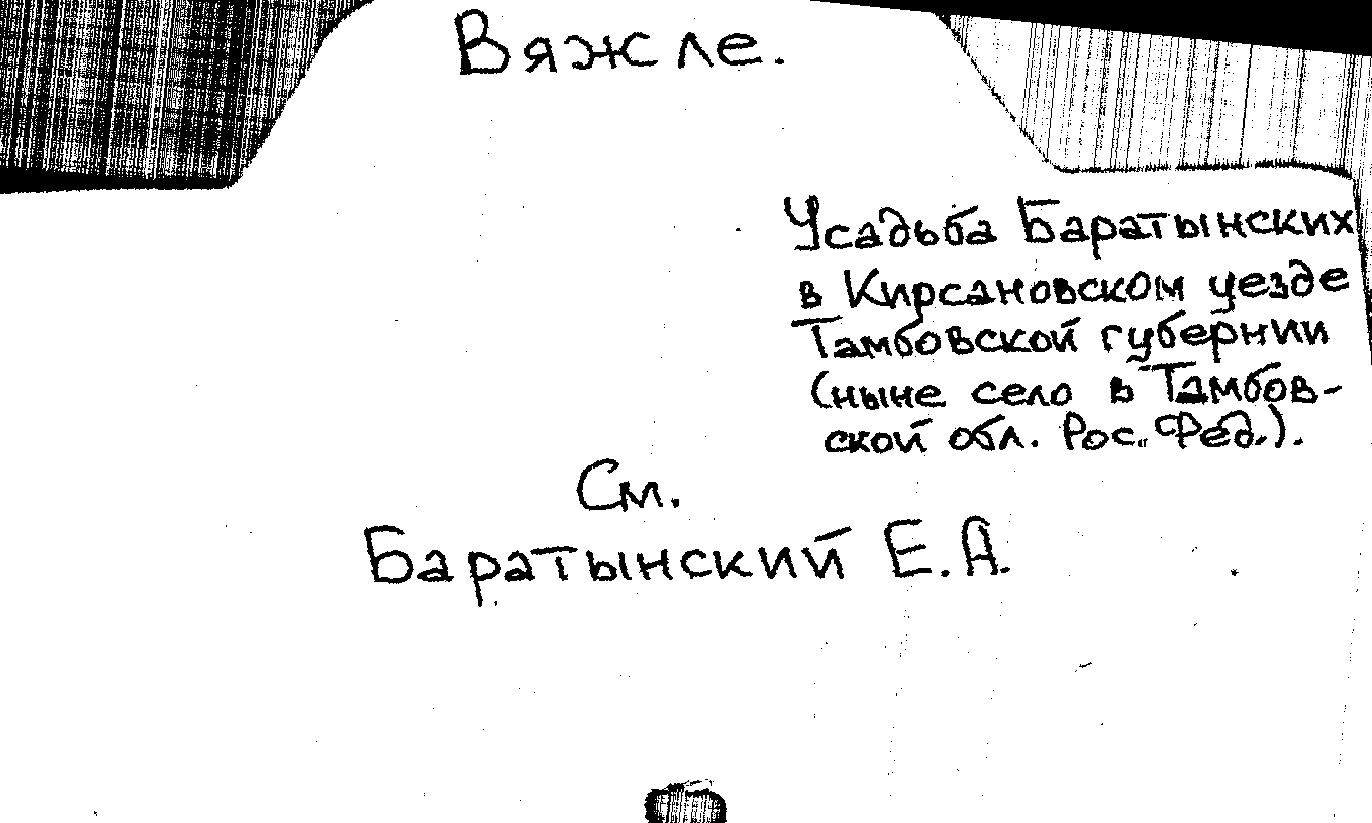 Вяжле.
Усадьба Баратынских
в Кирсановском уезде
Тамбовской губернии
(ныне село в Тамбов-
ской обл. Рос. Фед.).
См.
Баратынский Е.А.